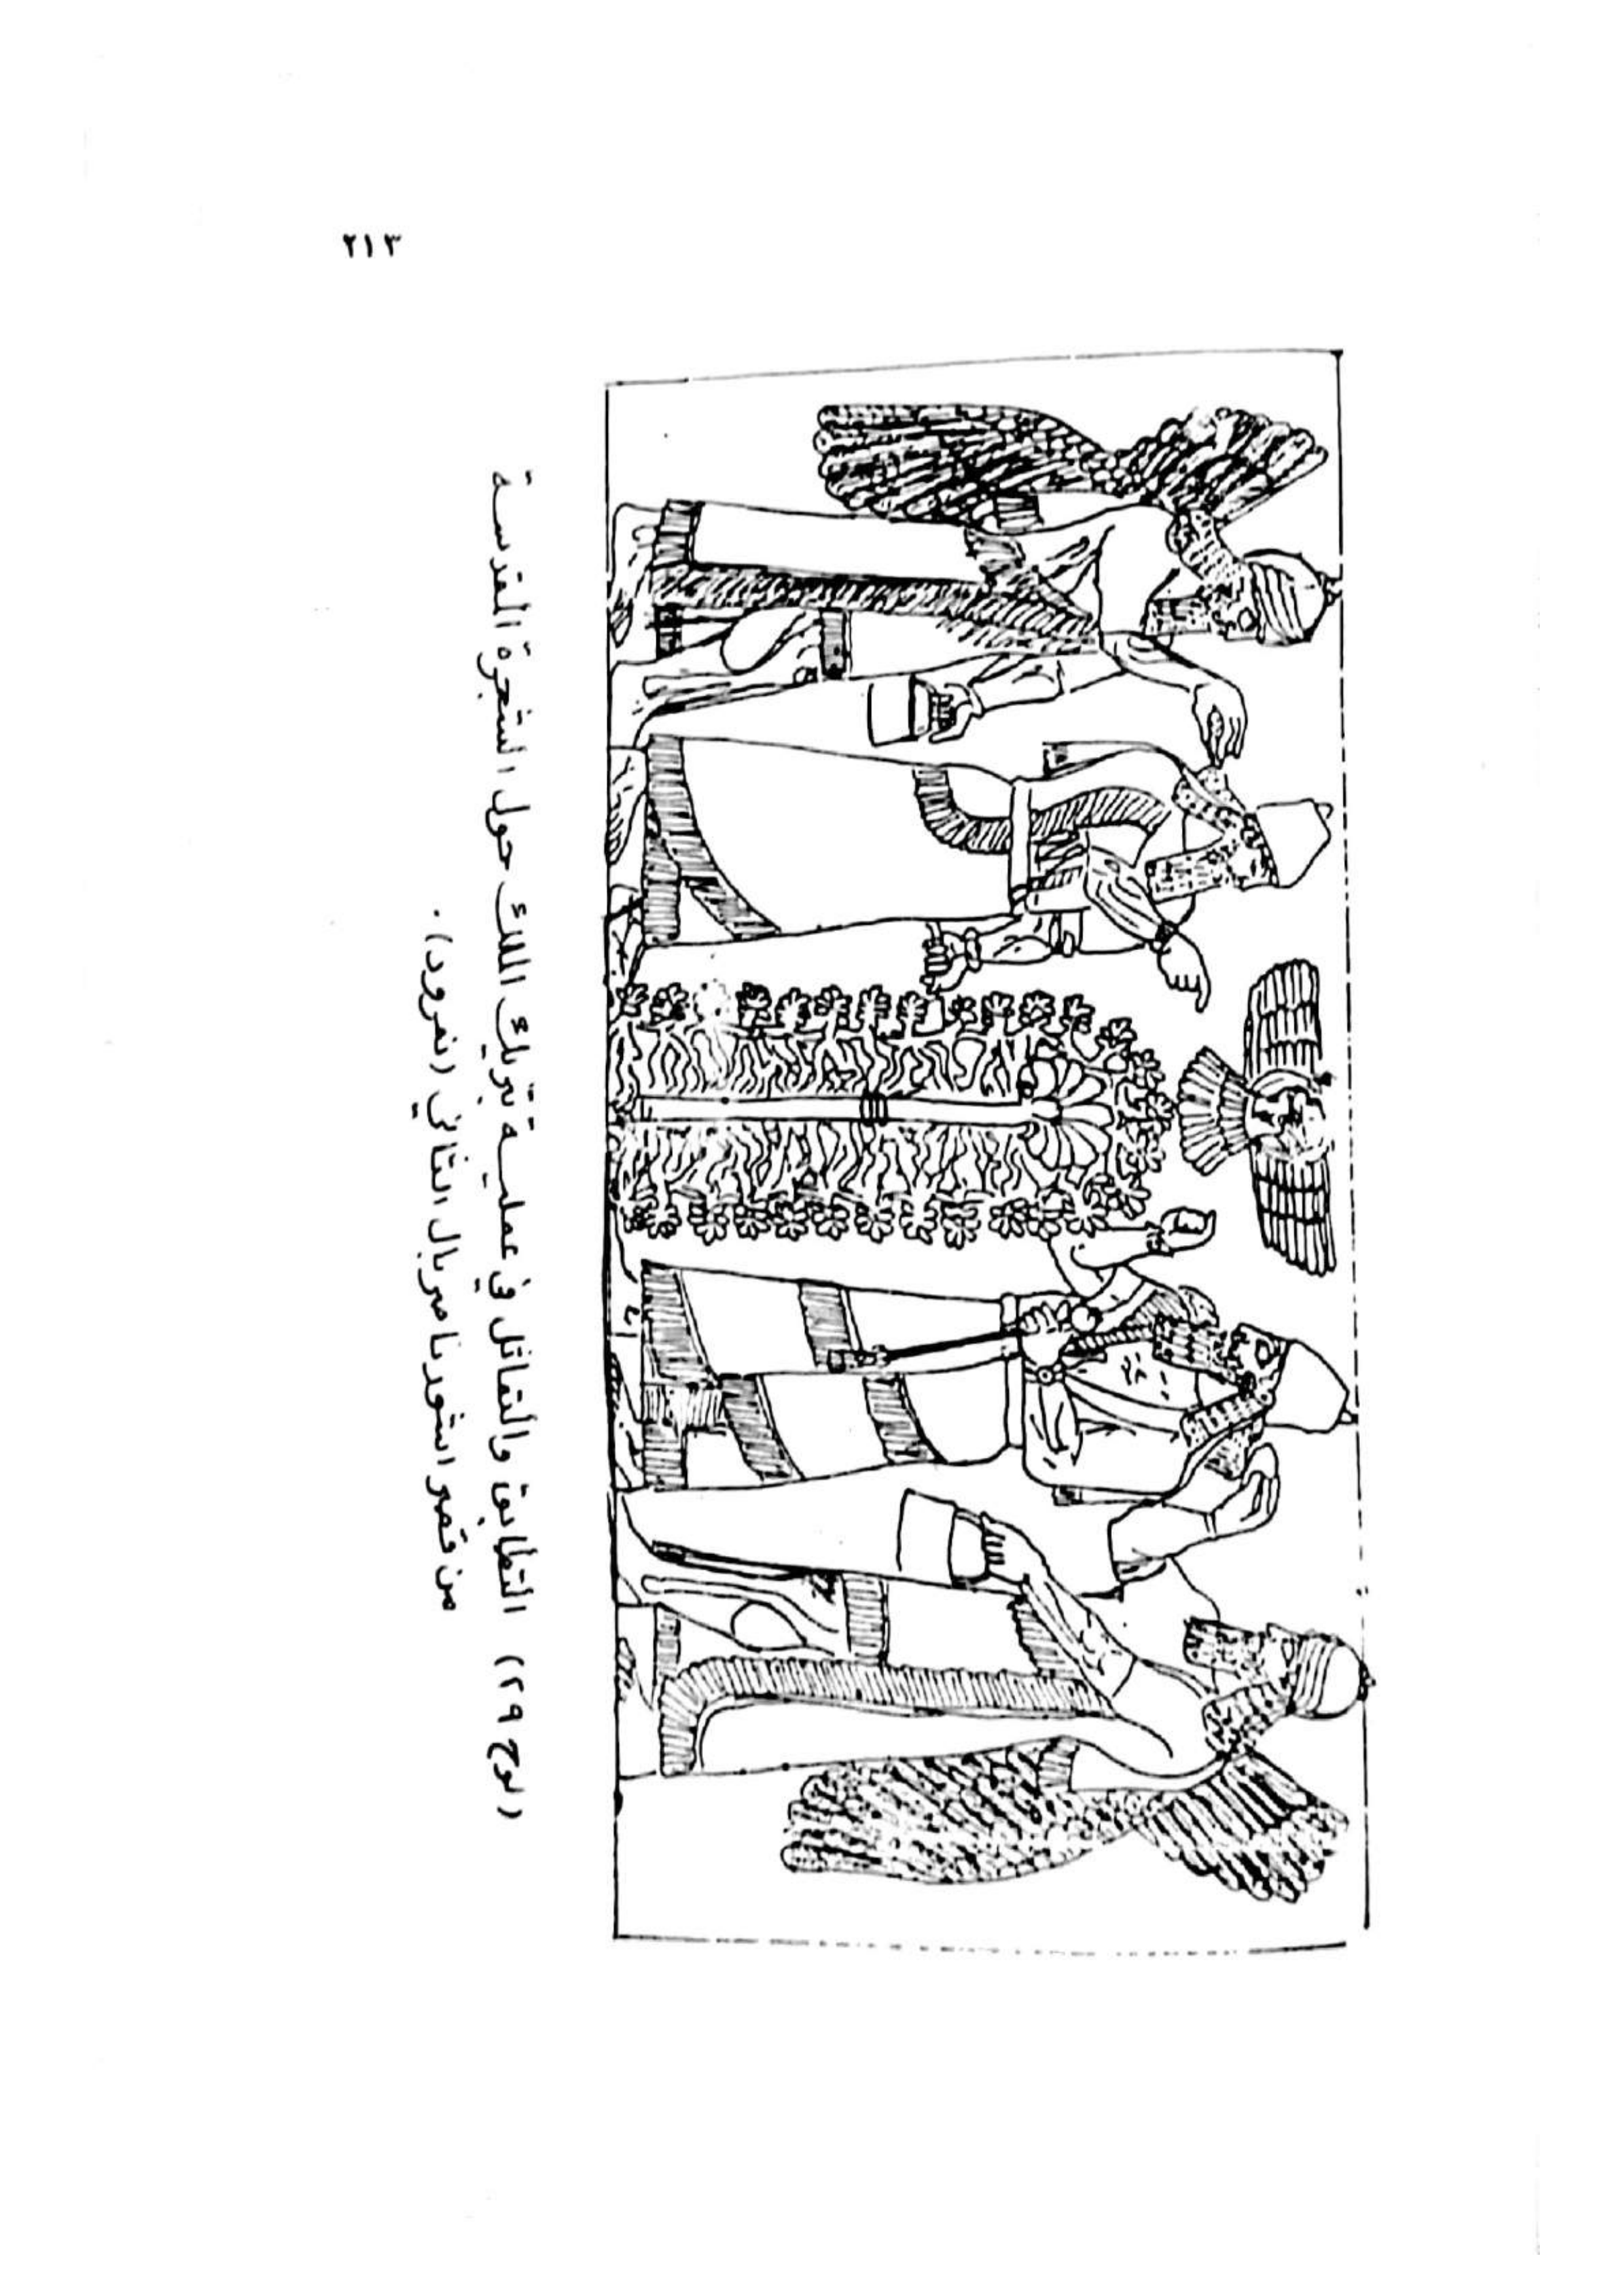 ٢١٣
(لوح ٢٩) التطابق والتماثل في عمليـة تبريك الملك حول الشجرة المقدسـة
من قصر اشورناصربال الثاني (نمرود).